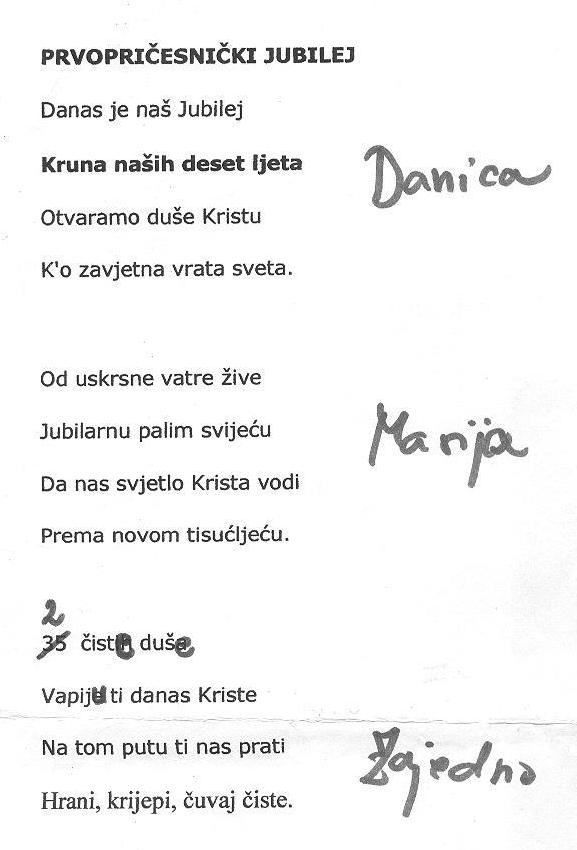 PRVOPRIČESNIČKI JUBILEJ
Danas je naš Jubilej
Kruna naših deset ljeta
Danica
Otvaramo duše Kristu
K'o zavjetna vrata sveta.
Od uskrsne vatre žive
Jubilarnu palim svijeću
Marija
Da nas svjetlo Krista vodi
Prema novom tisućljeću.
2
35 čiste duše
Vapiju ti danas Kriste
Na tom putu ti nas prati
Zajedno
Hrani, krijepi, čuvaj čiste.